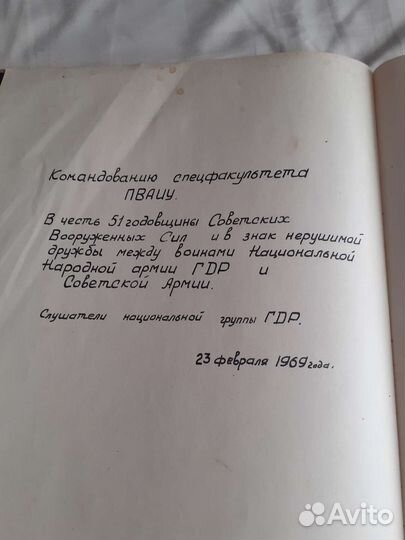 Командованию спецфакультета
ПВАИУ.
В честь 51 годовщины Советских
Вооруженных Сил и в знак нерушимой
дружбы между воинами Национальной
Народной армии ГДР и
Советской Армии.
Слушатели национальной группы ГДР.
23 февраля 1969 года.
Avito